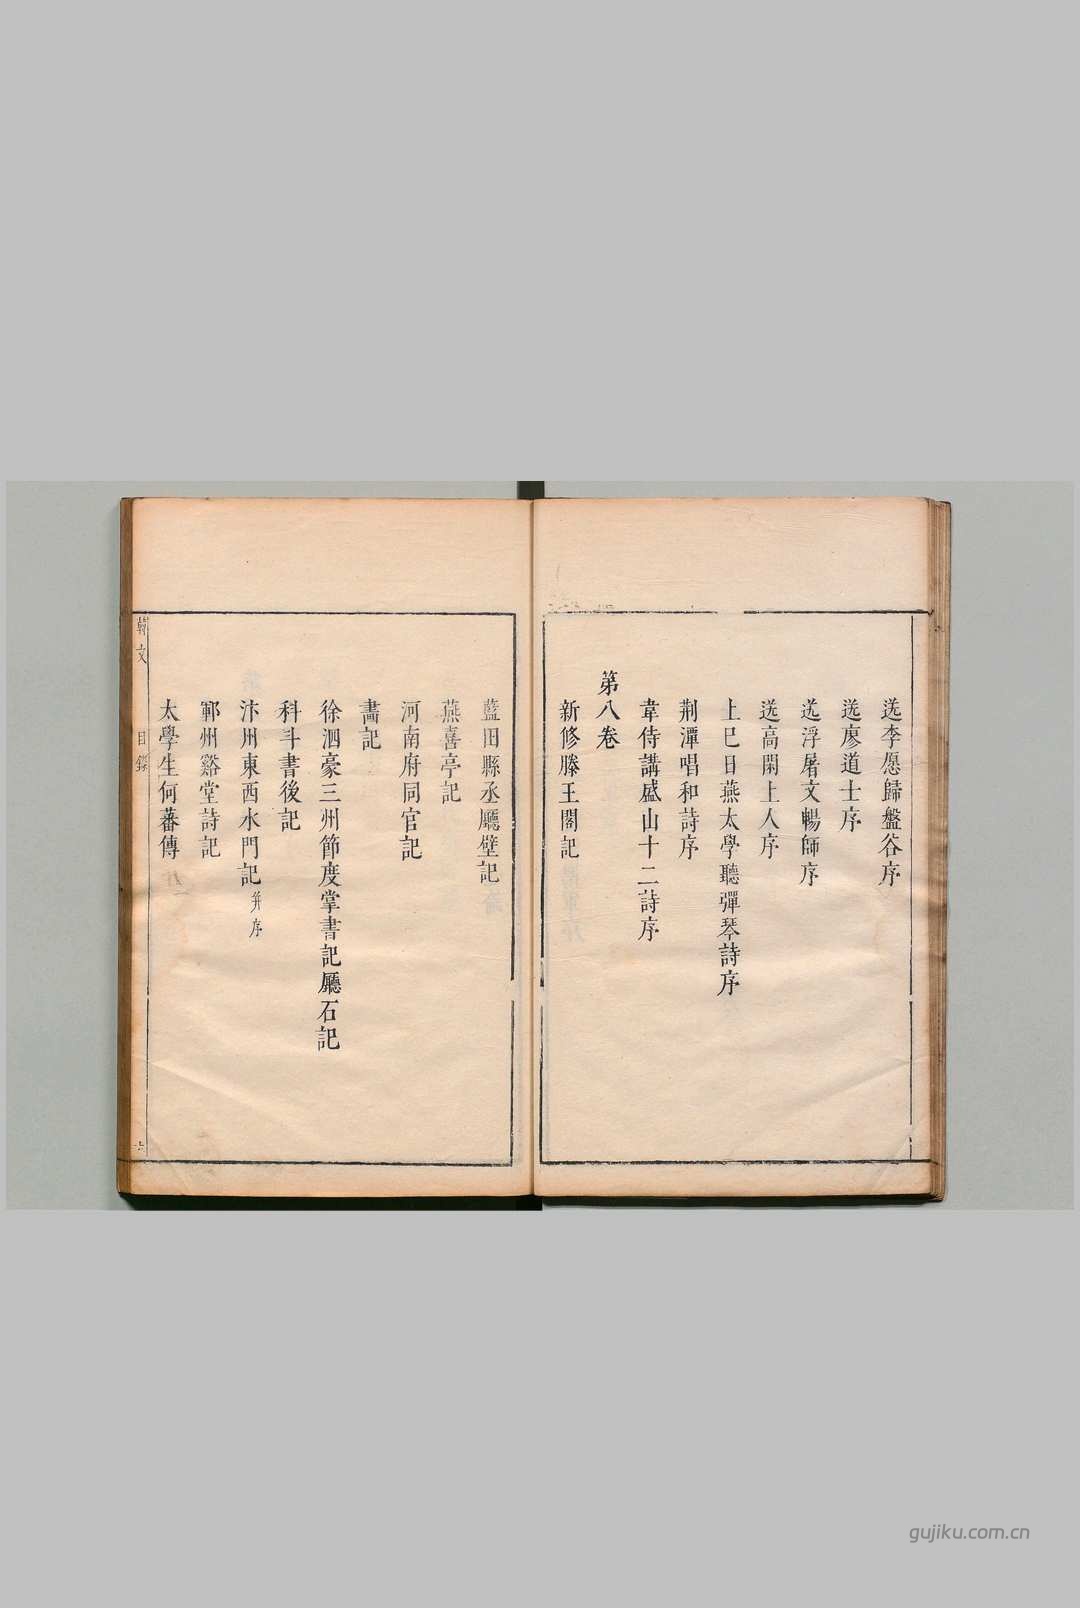 送李愿歸盤谷序
送廖道士序
送浮屠文暢師序
送高閑上人序
上巳日燕太學聽彈琴詩序
荆潭唱和詩序
韋侍講盛山十二詩序
第八卷
新修滕王閣記
藍田縣丞廳壁記
燕喜亭記
河南府同官記
畫記
徐泗豪三州節度掌書記廳石記
科斗書後記
汴州東西水門記 并序
鄆州谿堂詩記
太學生何蕃傳
韓文 目錄 六
gujiku.com.cn